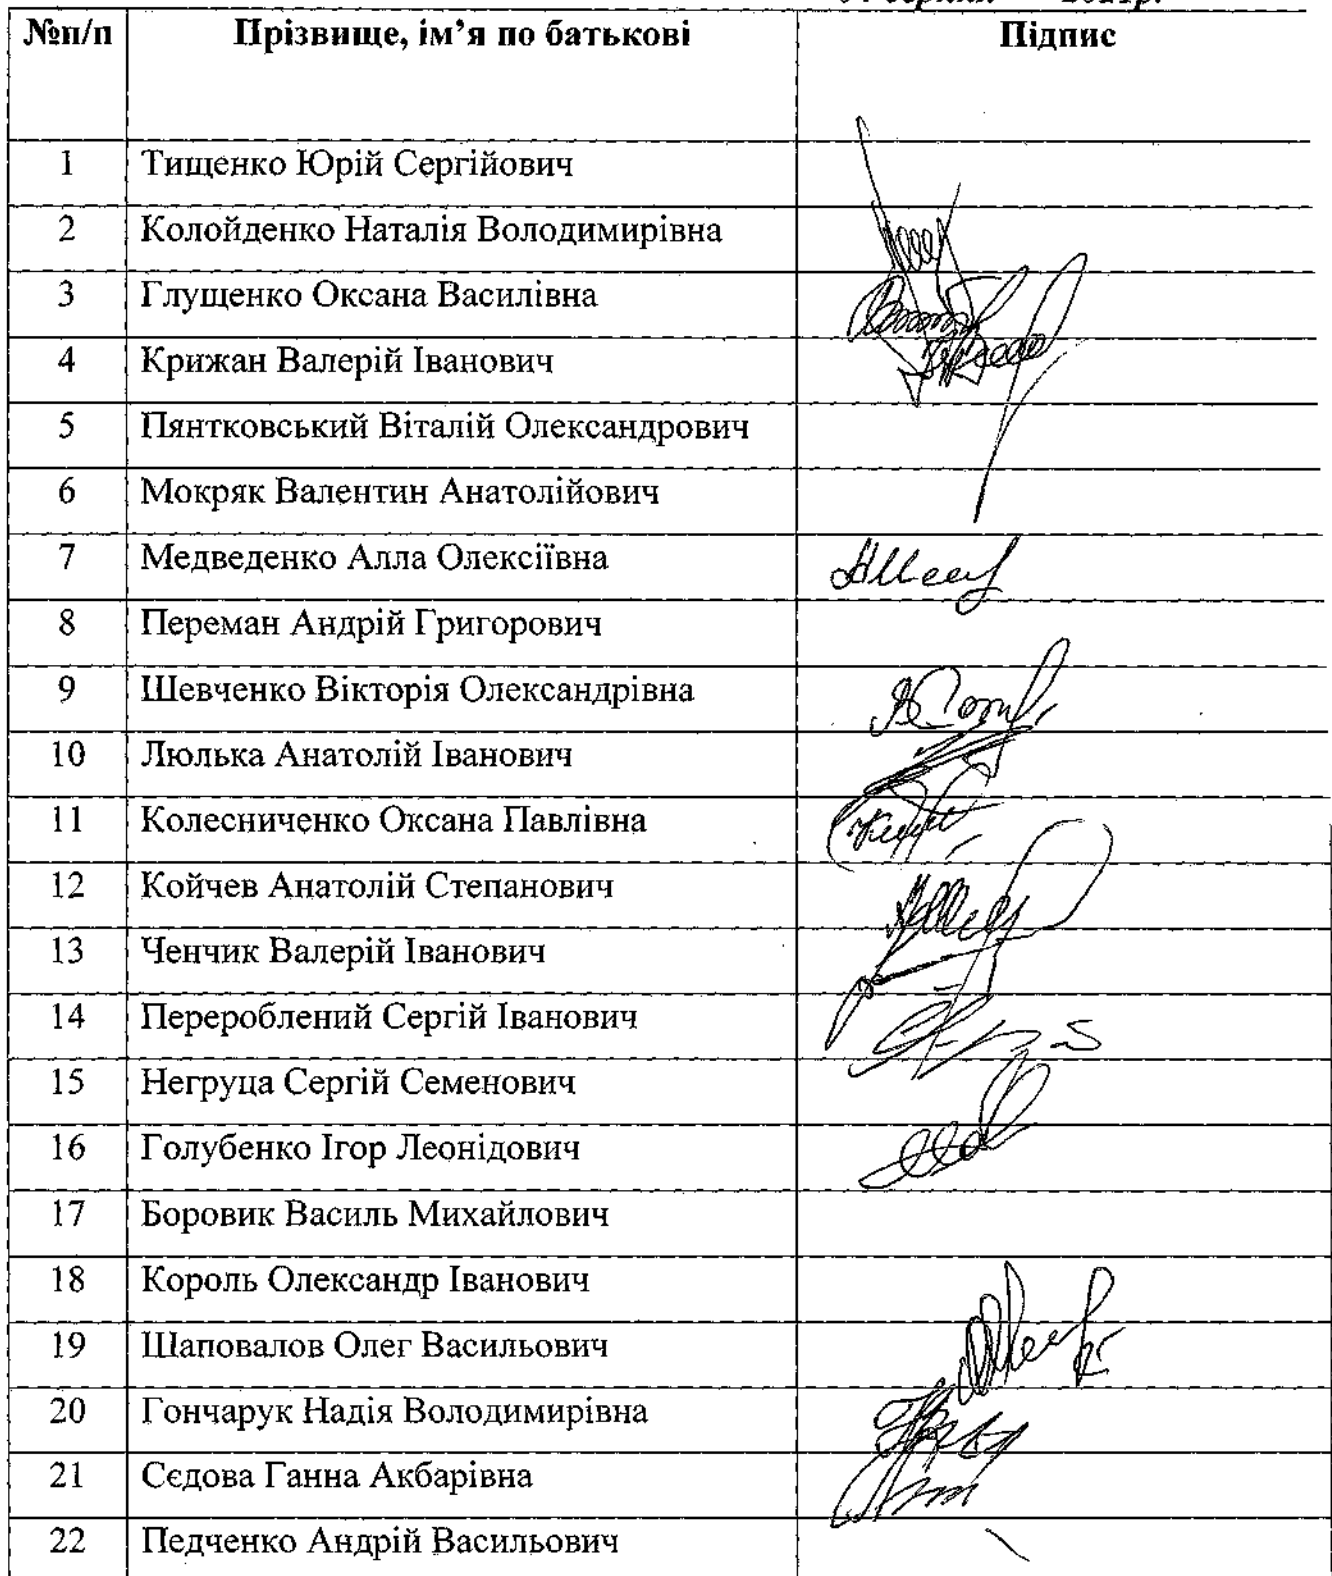 №п/п Прізвище, ім’я по батькові Підпис
1 Тищенко Юрій Сергійович
2 Колойденко Наталія Володимирівна
3 Глущенко Оксана Василівна
4 Крижан Валерій Іванович
5 Пянтковський Віталій Олександрович
6 Мокряк Валентин Анатолійович
7 Медведенко Алла Олексіївна
8 Переман Андрій Григорович
9 Шевченко Вікторія Олександрівна
10 Люлька Анатолій Іванович
11 Колесниченко Оксана Павлівна
12 Койчев Анатолій Степанович
13 Ченчик Валерій Іванович
14 Перероблений Сергій Іванович
15 Негруца Сергій Семенович
16 Голубенко Ігор Леонідович
17 Боровик Василь Михайлович
18 Король Олександр Іванович
19 Шаповалов Олег Васильович
20 Гончарук Надія Володимирівна
21 Сєдова Ганна Акбарівна
22 Педченко Андрій Васильович